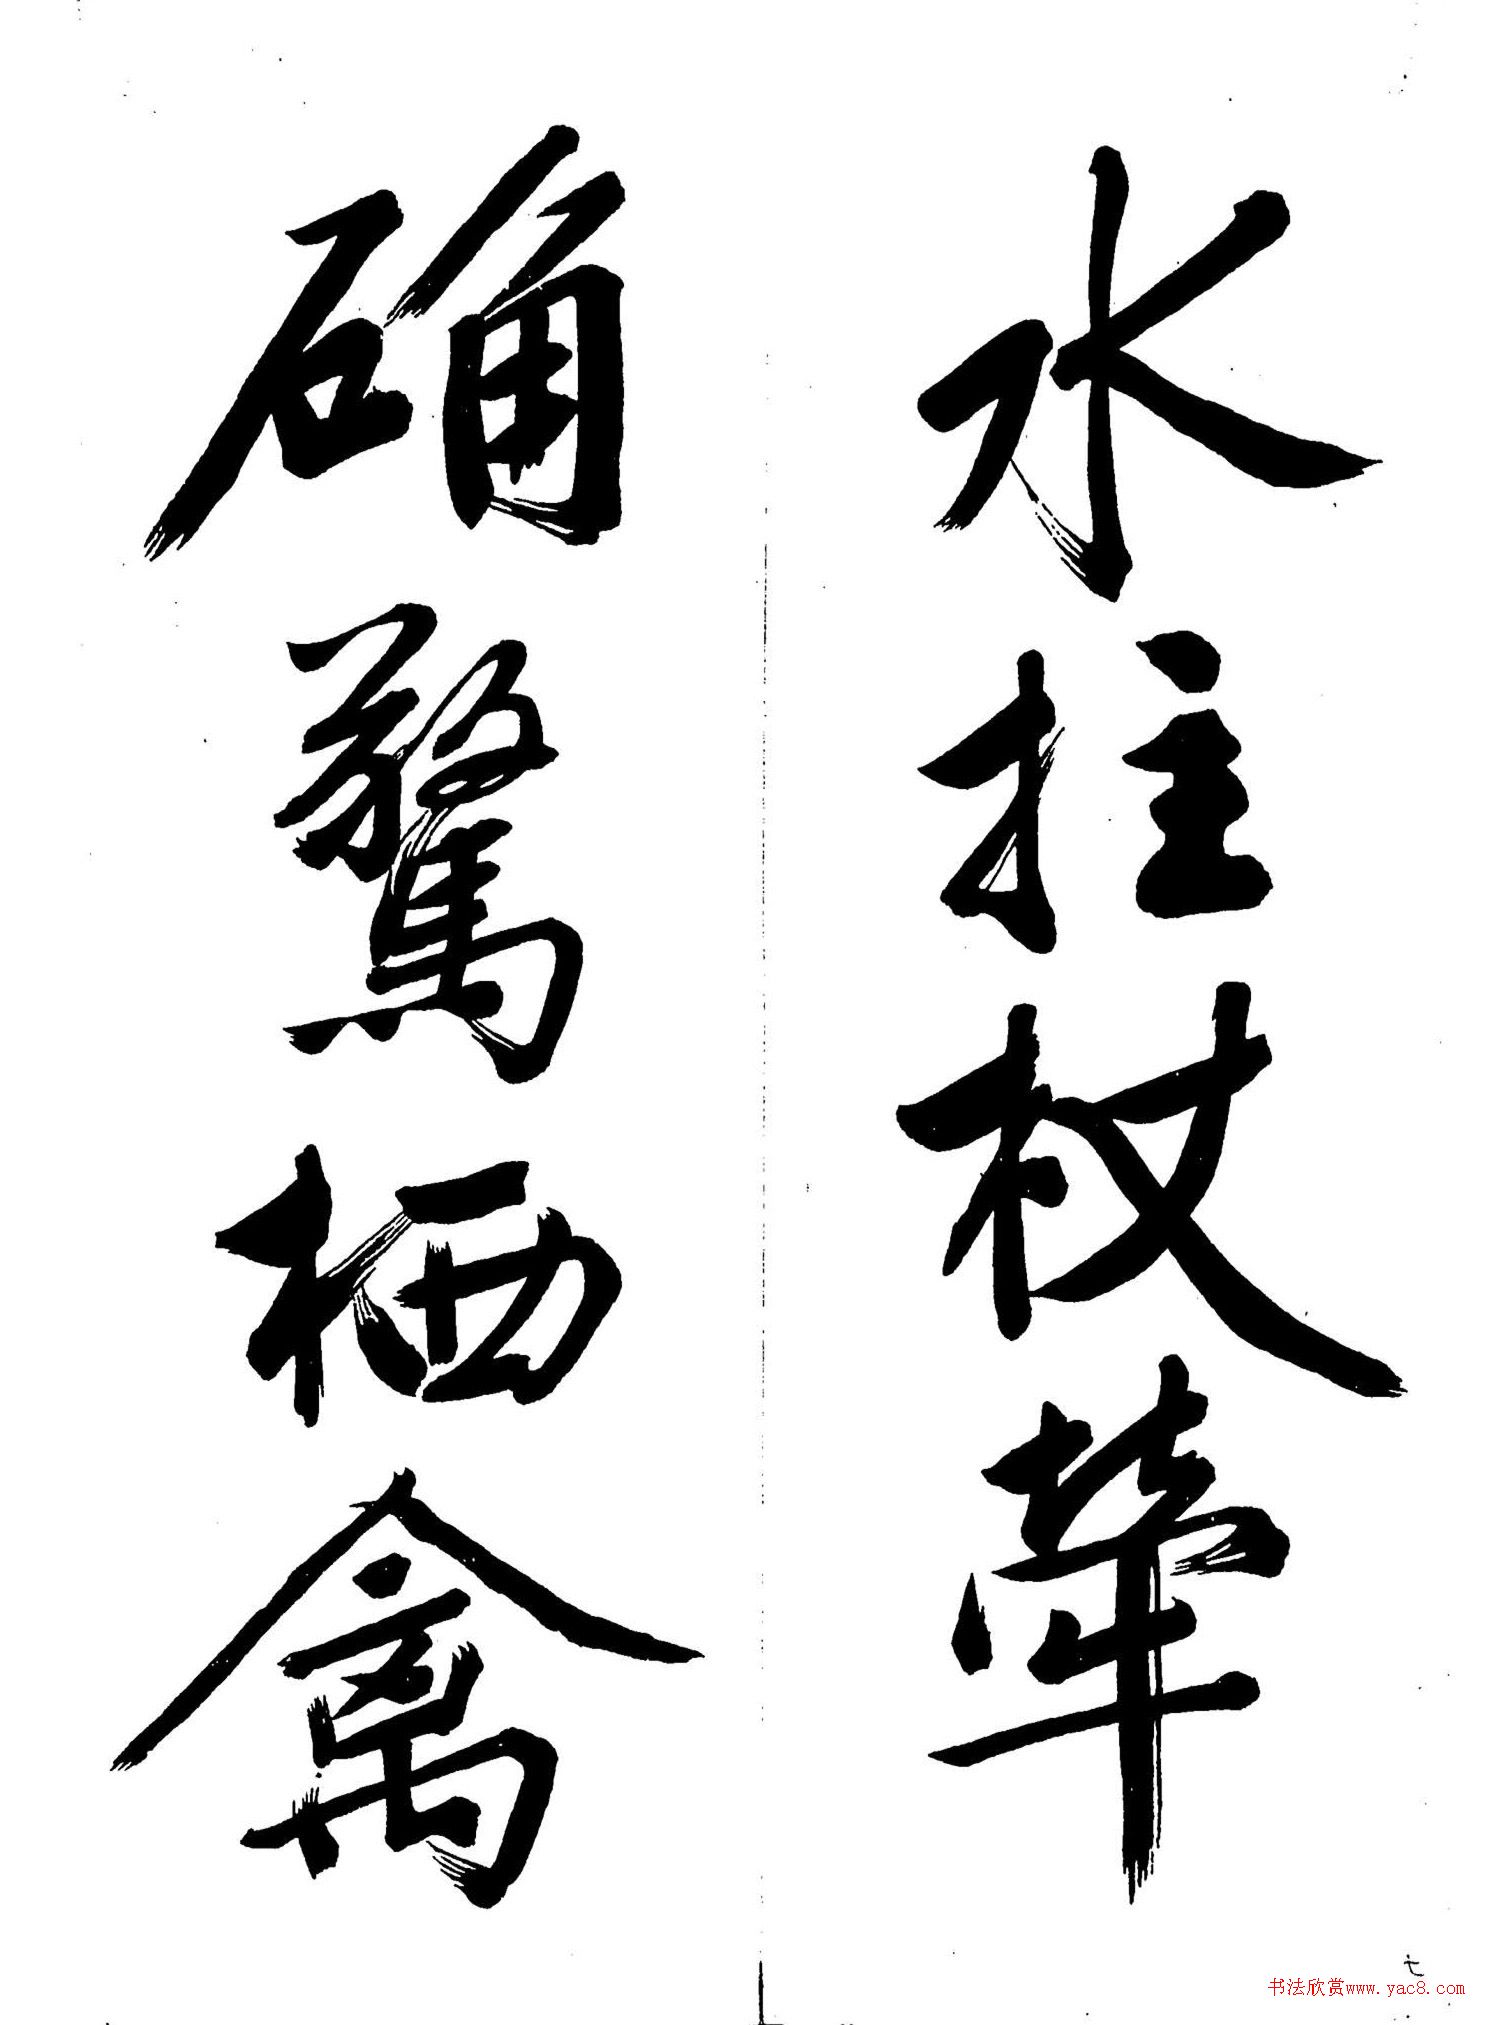 水拄杖犖
确驚栖禽
七
书法欣赏www.yac8.com